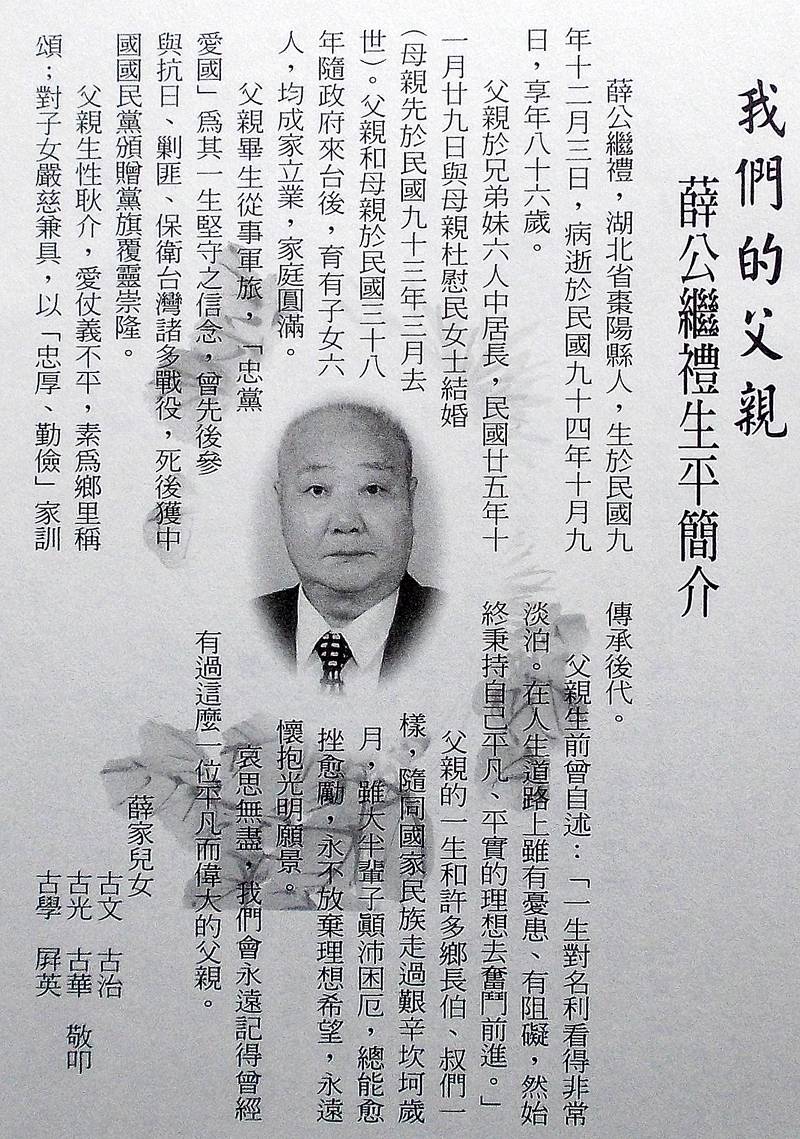 我們的父親
薛公繼禮生平簡介
薛公繼禮，湖北省棗陽縣人，生於民國九
年十二月三日，病逝於民國九十四年十月九
日，享年八十六歲。
父親於兄弟妹六人中居長，民國廿五年十
一月廿九日與母親杜慰民女士結婚
（母親先於民國九十三年三月去
世）。父親和母親於民國三十八
年隨政府來台後，育有子女六
人，均成家立業，家庭圓滿。
父親畢生從事軍旅，「忠黨
愛國」為其一生堅守之信念，曾先後參
與抗日、剿匪、保衛台灣諸多戰役，死後獲中
國國民黨頒贈黨旗覆靈崇隆。
父親生性耿介，愛仗義不平，素為鄉里稱
頌；對子女嚴慈兼具，以「忠厚、勤儉」家訓
傳承後代。
父親生前曾自述：「一生對名利看得非常
淡泊。在人生道路上雖有憂患、有阻礙，然始
終秉持自己平凡、平實的理想去奮鬥前進。」
父親的一生和許多鄉長伯、叔們一
樣，隨同國家民族走過艱辛坎坷歲
月，雖大半輩子顛沛困厄，總能愈
挫愈勵，永不放棄理想希望，永遠
懷抱光明願景。
哀思無盡，我們會永遠記得曾經
有過這麼一位平凡而偉大的父親。
薛家兒女
古文　古治
古光　古華　敬叩
古學　屏英